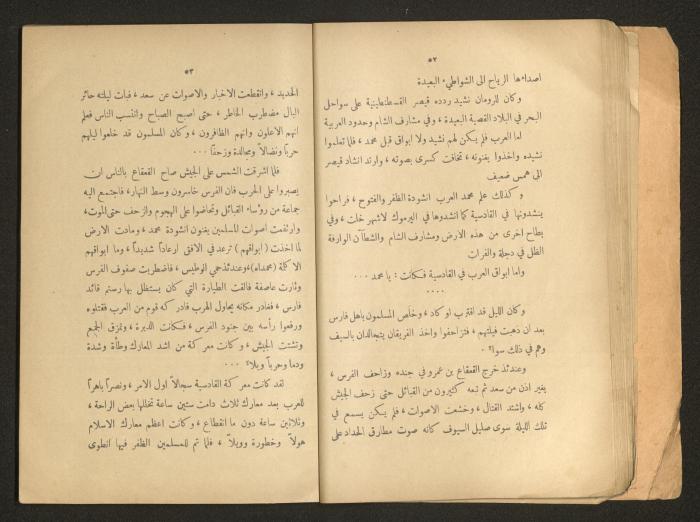 ٥٢
اصداءها الرياح الى الشواطىء البعيدة
وكان للرومان نشيد ردده قيصر القسطنطينية على سواحل
البحر في البلاد القصية البعيدة ، وفي مشارف الشام وحدود العربية
اما العرب فلم يكن لهم نشيد ولا ابواق قبل محمد ، فلما تعلموا
نشيده واخذوا يغنونه ، تخافت كسرى بصوته ، وارتد انشاد قيصر
الى همس ضعيف
و كذلك علم محمد العرب انشودة الظفر والفتوح ، فراحوا
ينشدونها في القادسية كما انشدوها في اليرموك لاشهر خلت ، وفي
بطاح اخرى من هذه الارض ومشارف الشام والشطآن الوارفة
الظل في دجلة والفرات
واما ابواق العرب في القادسية فكانت : يا محمد ...
....
وكان الليل قد اقترب او كاد ، وخلص المسلمون باهل فارس
بعد ان ذهبت فيلتهم ، فتزاحفوا واخذ الفريقان يتجالدان بالسيف
وهم في ذلك سواء
وعندئذ خرج القعقاع بن عمرو في جنده وزاحف الفرس ،
بغير اذن من سعد ثم تبعه كثيرون من القبائل حتى زحف الجيش
كله ، واشتد القتال ، وخشعت الاصوات ، فلم يكن يسمع في
تلك الليلة سوى صليل السيوف كانه صوت مطارق الحداد على
٥٣
الحديد ، وانقطعت الاخبار والاصوات عن سعد ، فبات ليلته حائر
البال مضطرب الخاطر ، حتى اصبح الصباح وانتسب الناس فعلم
انهم الاعلون وانهم الظافرون ، وكان المسلمون قد خاضوا ليلهم
حربا ونضالاً ومجالدة وزحفا ...
فلما اشرقت الشمس على الجيش صاح القعقاع بالناس ان
يصبروا على الحرب فان الفرس خاسرون وسط النهار ، فاجتمع اليه
جماعة من رؤساء القبائل وتحاضوا على الهجوم والزحف حتى الموت ،
وارتفعت اصوات المسلمين يغنون انشودة محمد ، ومادت الارض
لما اخذت ( ابواقهم ) ترعد في الافق ارعاداً شديداً ، وما ابواقهم
الا كلمة ( محمداه ) ، وعندئذ حمي الوطيس ، فاضطربت صفوف الفرس
وثارت عاصفة فالقت الطيارة التي كان يستظل بها رستم قائد
فارس ، فغادر مكانه يحاول الهرب فادركه قوم من العرب فقتلوه
ورفعوا رأسه بين جنود الفرس ، فكانت الدبرة ، وتمزق الجمع
وتشتت الجيش ، وكانت معركة من اشد المعارك وطأة وشدة
ودما وحربا وبلاء ...
لقد كانت معركة القادسية سجالاً اول الامر ، ونصراً باهراً
للعرب بعد معارك ثلاث دامت ستين ساعة تخللها بعض الراحة ،
وثلاثين ساعة دون ما انقطاع ، وكانت اعظم معارك الاسلام
هولاً وخطورة وويلاً ، فلما تم للمسلمين الظفر فيها انطوى